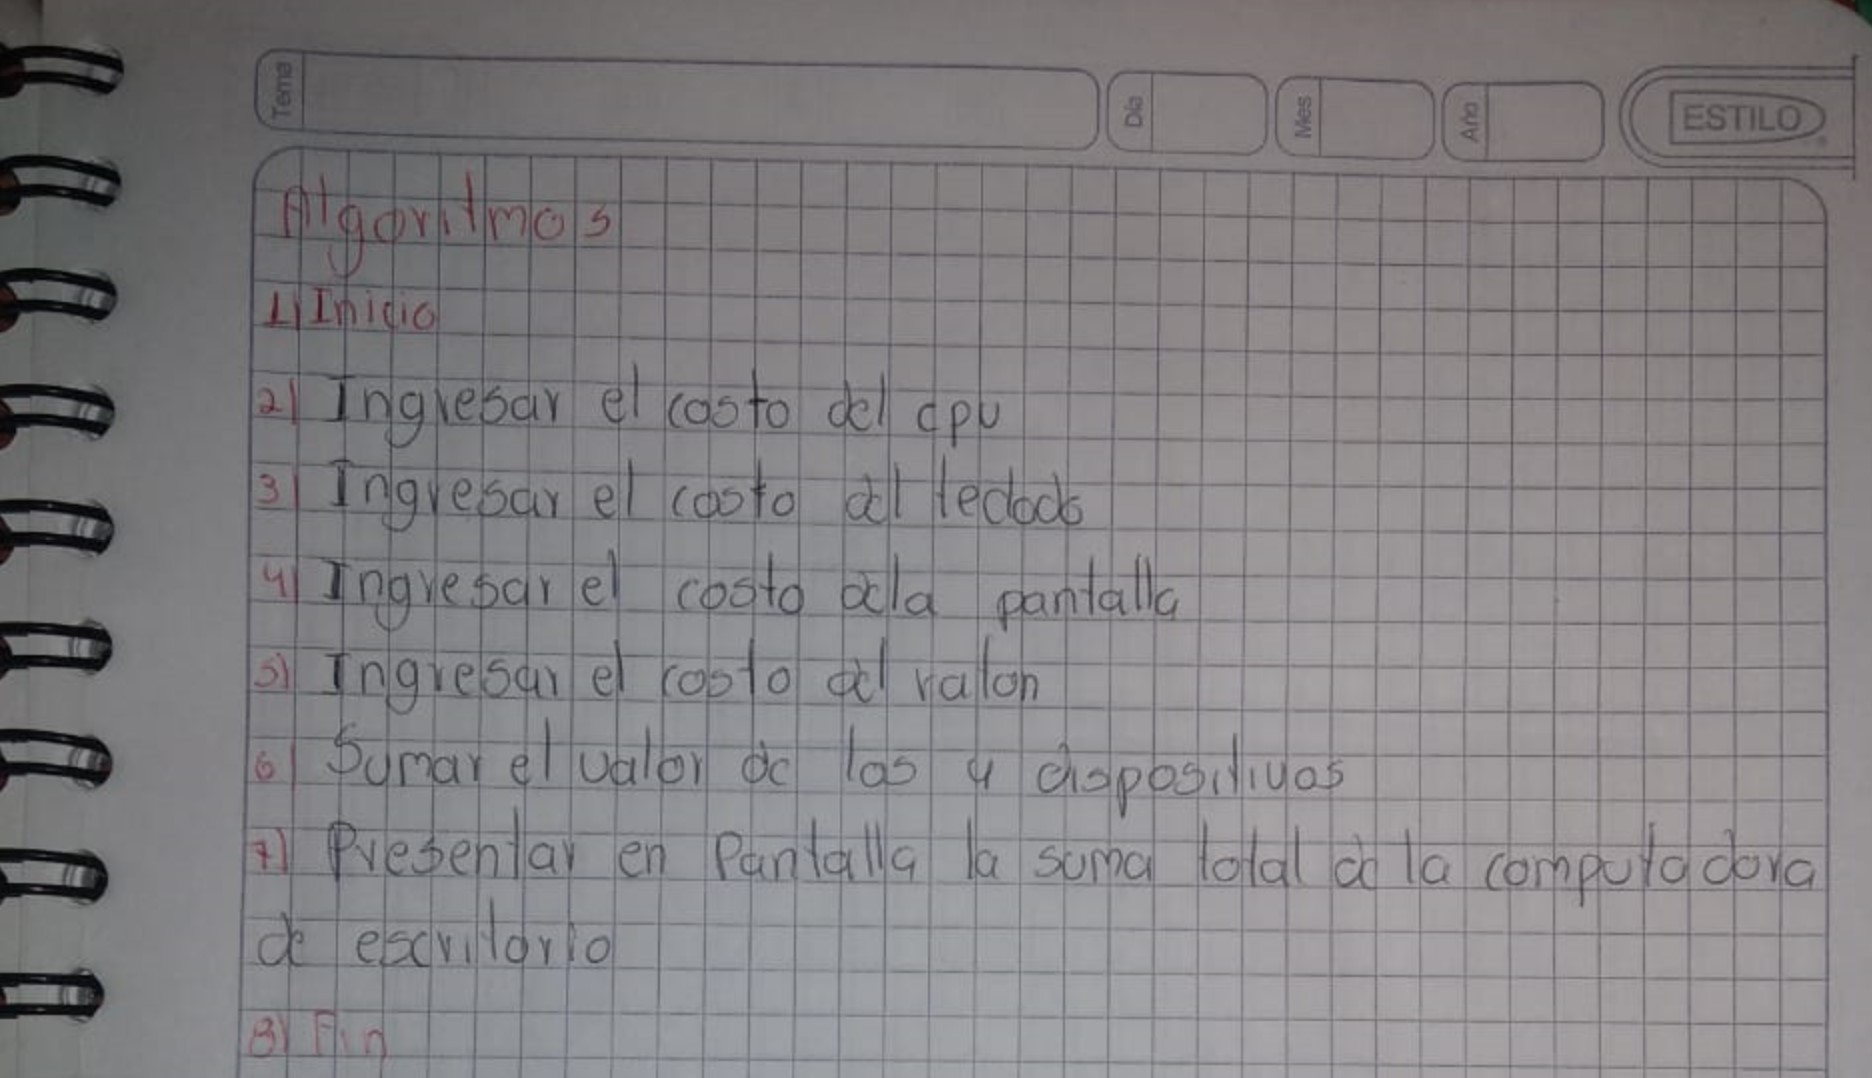 Tema
Día
Mes
Año
ESTILO
Algoritmos
1) Inicio
2) Ingresar el costo del cpu
3) Ingresar el costo del teclado
4) Ingresar el costo de la pantalla
5) Ingresar el costo del raton
6) Sumar el valor de los 4 dispositivos
7) Presentar en Pantalla la suma total de la computadora
de escritorio
8) Fin